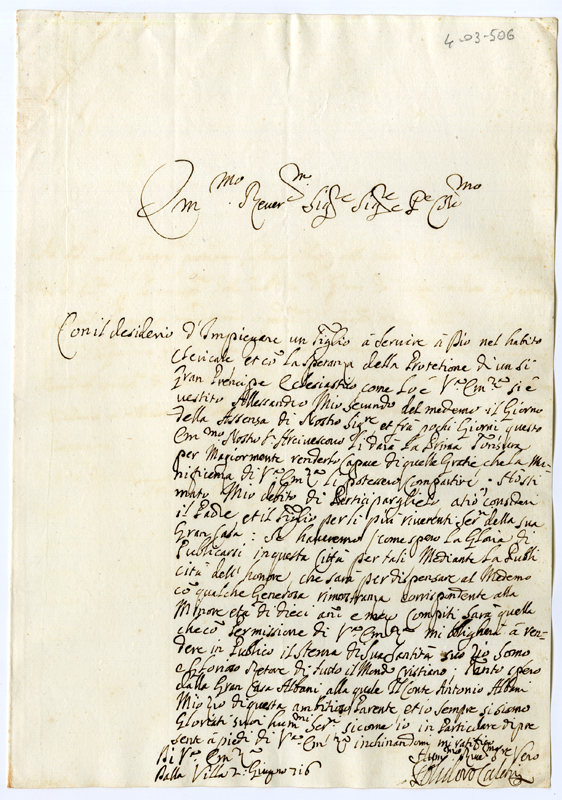 4-03-506
Em mo Rever m Sig re Sig re P re Col mo
Con il desiderio d'Impiegare un figlio à servire à Dio nel habito
Clericale et cō la speranza della Protetione di un si
gran Prencipe Eclesiastico come lo è V ra Em za si è
vestito Allessandro Mio secundo del medemo il Giorno
della Assensa di Nostro Sig re et fra pochi Giorni questo
Em mo Nostro Arcivescovo li darà la Prima Tonsura
per Magiormente renderlo Capace di quelle Gratie che la Mu
nificenza di V ra Em za li potessero Compartire. Hò sti
mato Mio debito di Participarglielo acio consideri
il Padre et il figlio per li piu riverenti Ser ri della sua
Gran Casa: Se haveremo come spero la Gloria di
Publicarsi in questa Città per tali Mediante la Publi
cità dell'honore, che sarà per dispensare al Medemo
cō qualche Generosa rimostranza corrispondente alla
Minore età di dieci ani e mezo Compiti sarà quella
che cō permissione di V ra Em za mi obligherà à ren-
dere in Publico il stema di Sua Santità suo zio somo
e glorioso Retore di tudo il Mondo Cristiano, Tanto spero
dalla Gran Casa Albani alla quale il Conte Antonio Albani
Mio zio di questa ambitioso Parente et io sempre si siamo
Gloriati suoi hum mi Ser ri sicome io in Particolare di pre
sente à piedi di V ra Em za inchinandomi mi ratifico
Di V ra Em za
Dalla Villa 2. Giugno 716